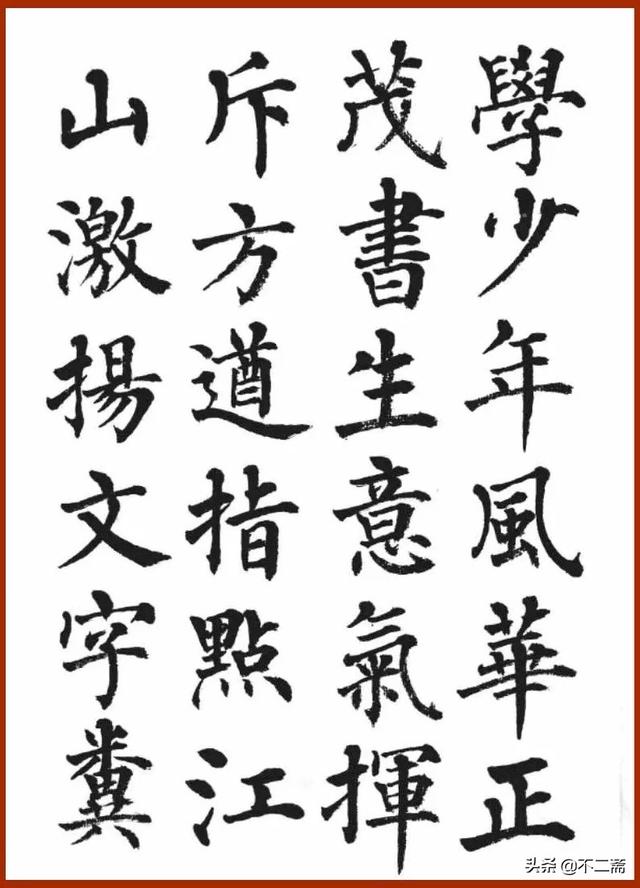 學少年風華正
茂書生意氣揮
斥方遒指點江
山激揚文字糞
头条 @不二斋